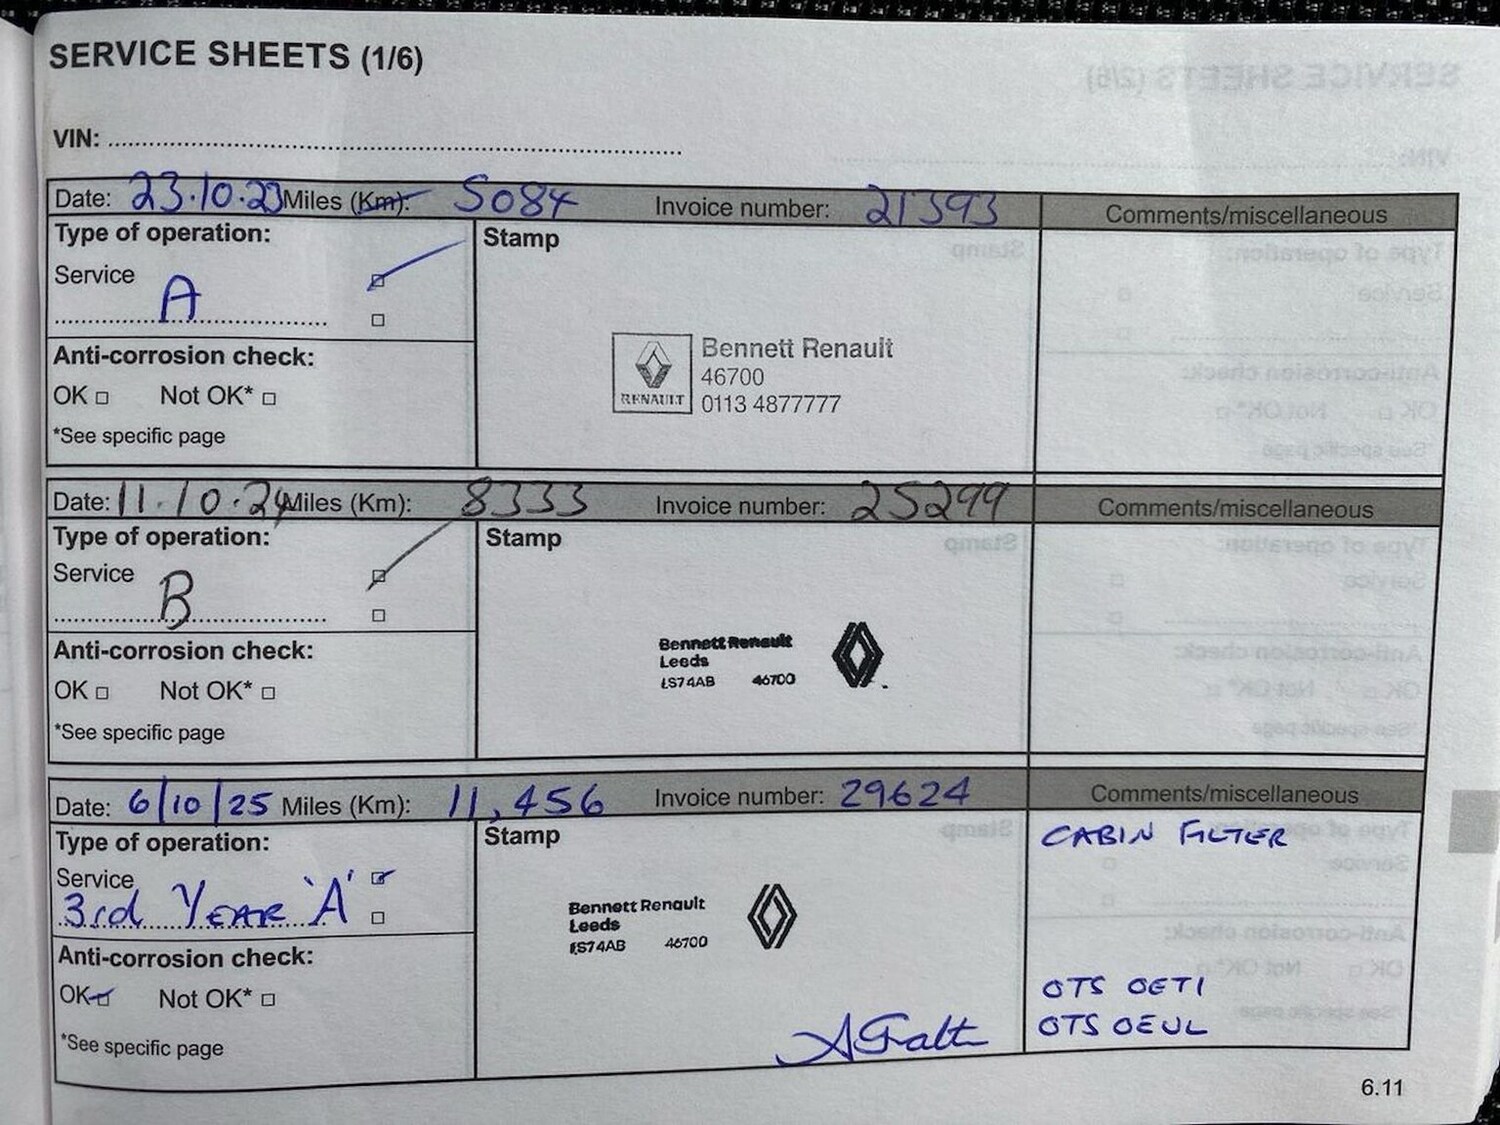 SERVICE SHEETS (1/6)
VIN:
Date: 23.10.23 Miles (Km): 5084 Invoice number: 21393 Comments/miscellaneous
Type of operation: Stamp
Service
A
Anti-corrosion check:
OK Not OK*
*See specific page
RENAULT
Bennett Renault
46700
0113 4877777
Date: 11.10.24 Miles (Km): 8333 Invoice number: 25299 Comments/miscellaneous
Type of operation: Stamp
Service
B
Anti-corrosion check:
OK Not OK*
*See specific page
Bennett Renault
Leeds
LS74AB 46700
Date: 6/10/25 Miles (Km): 11,456 Invoice number: 29624 Comments/miscellaneous
Type of operation: Stamp
Service
3rd YEAR 'A'
Anti-corrosion check:
OK Not OK*
*See specific page
Bennett Renault
Leeds
LS74AB 46700
CABIN FILTER
OTS OETI
OTS OEUL
6.11